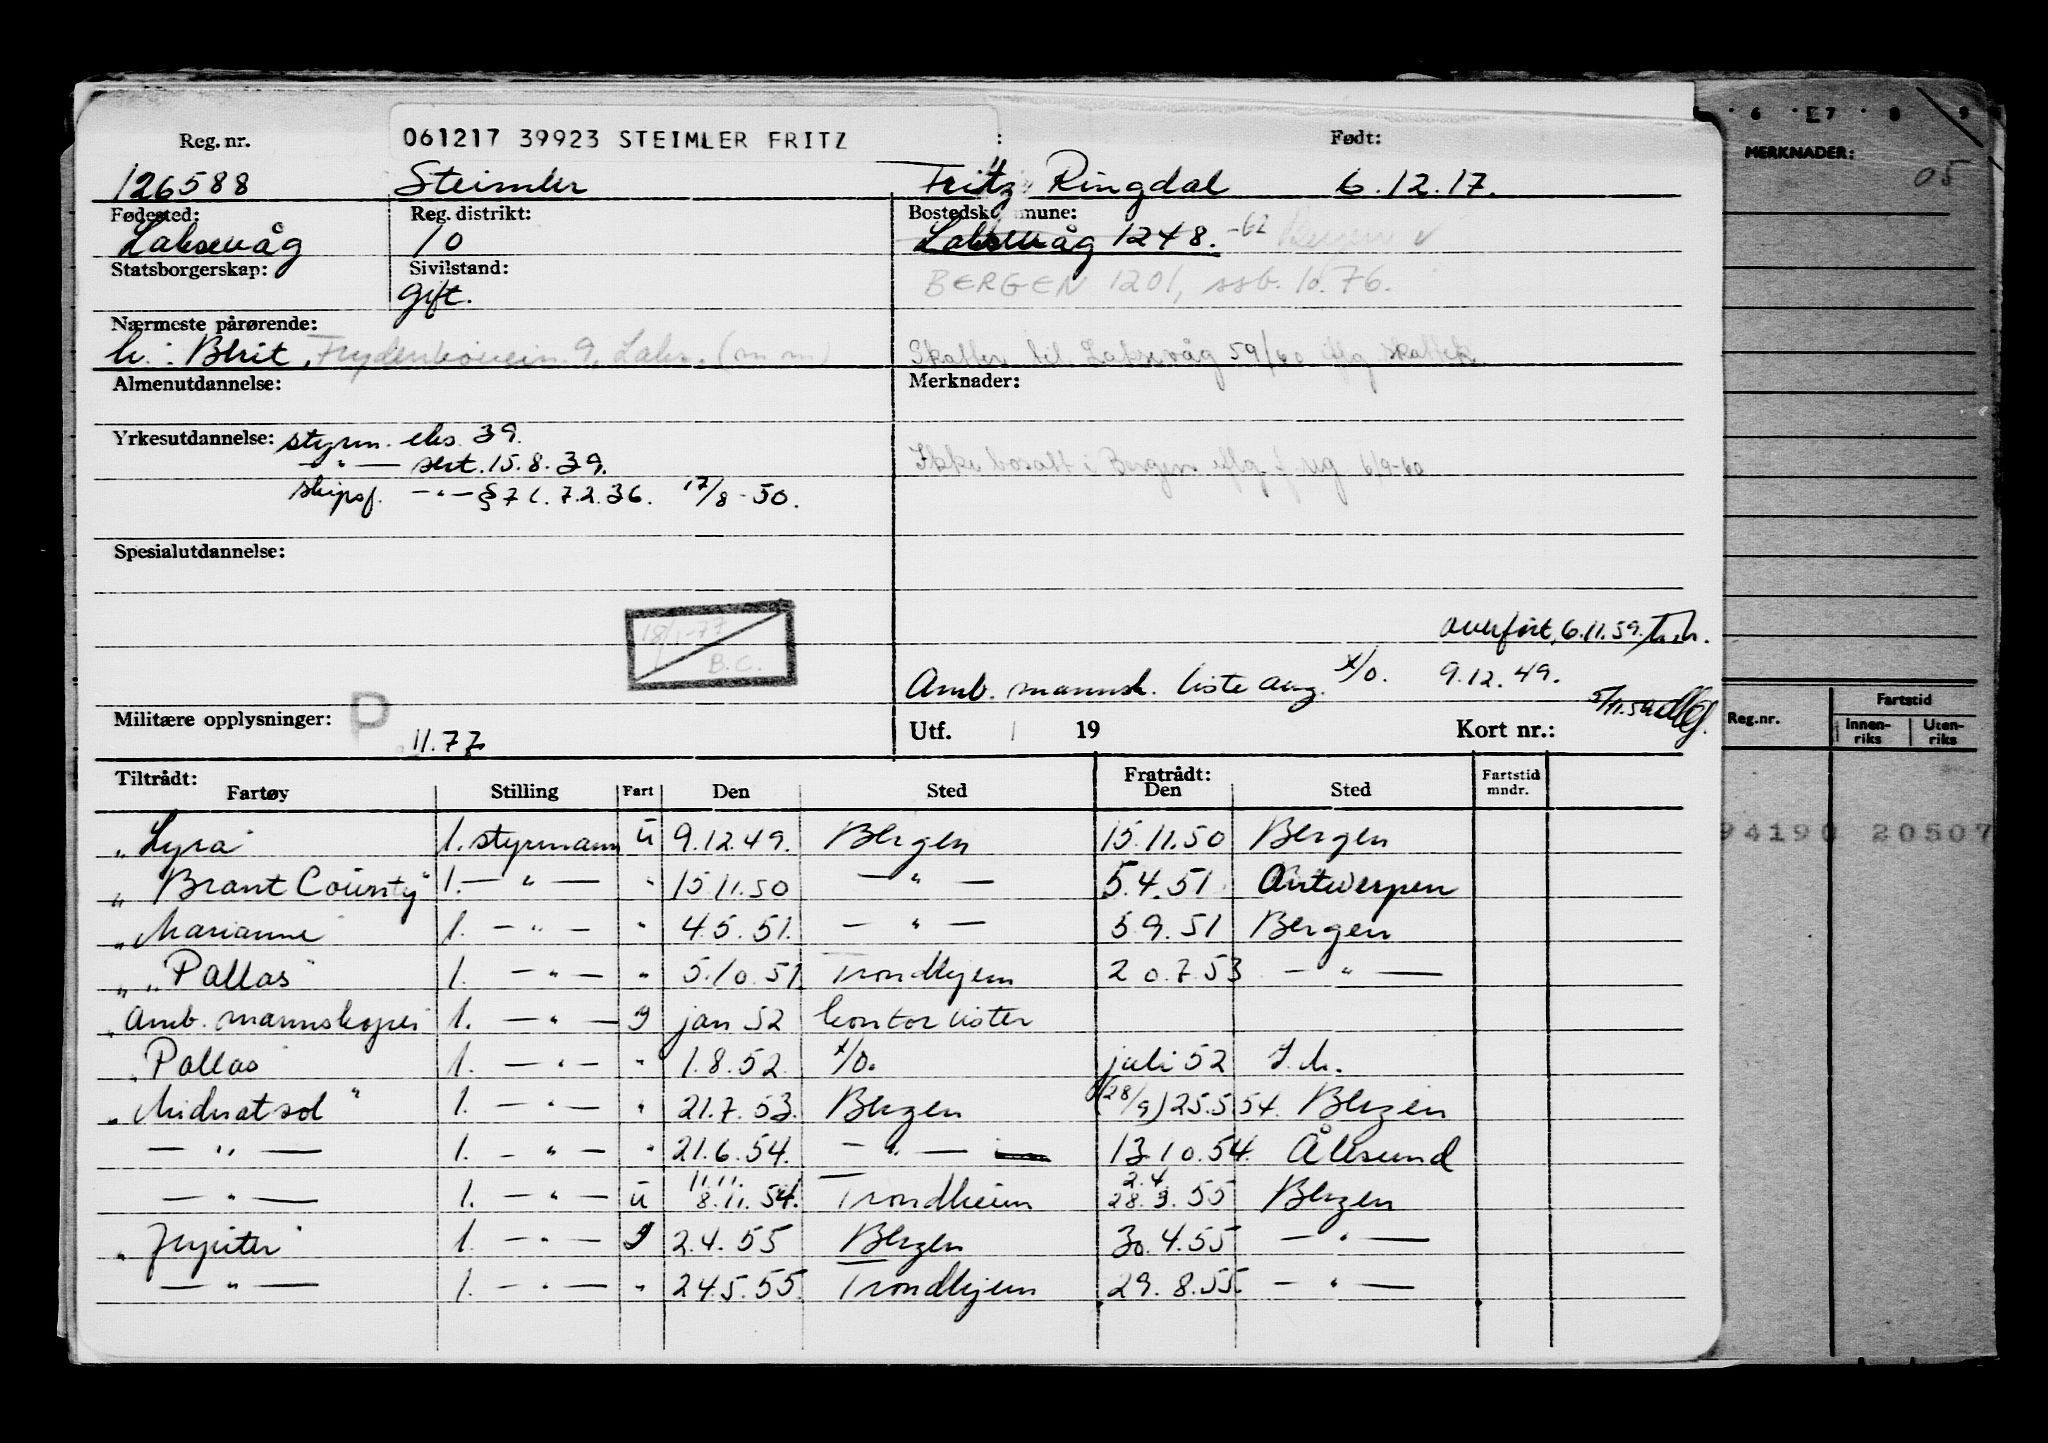 061217 39923 STEIMLER FRITZ
Reg. nr. : Født:
126588 Steimler "Fritz" Ringdal 6.12.17.
Fødested: Reg. distrikt: Bostedskommune:
Laksevåg 10 Laksevåg 1248. -62 Bergen v
Statsborgerskap: Sivilstand:
gift. BERGEN 1201, ssb. 10.76.
Nærmeste pårørende:
h.: Berit, 9, Laks. (m m) Skatter til Laksevåg 59/60 iflg skattek
Almenutdannelse: Merknader:
Yrkesutdannelse: styrm. eks. 39.
— " — sert. 15.8.39. Ikke bosatt i Bergen iflg f. reg 6/9-60
skipsf. — " — § 7 l. 7.2.36. 17/8-50.
Spesialutdannelse:
18/1-77
B.C.
overført, 6.11.59.
Amb. mannsk. liste aug. t/o. 9.12.49.
5/11.59
P
Militære opplysninger: Utf. 19 Kort nr.:
11.77
Tiltrådt: Fratrådt:
Fartøy Stilling Fart Den Sted Den Sted Fartstid mndr.
"Lyra" 1. styrmann u 9.12.49. Bergen 15.11.50 Bergen
"Brant County" 1. — " — " 15.11.50 — " — 5.4.51. Antwerpen
"Marianne" 1. — " — " 4.5.51. — " — 5.9.51 Bergen
" "Pallas" 1. — " — " 5.10.51. Trondhjem 20.7.53 — " —
"Amb. mannskaper 1. — " — g jan 52 kontor lister
"Pallas" 1. — " — " 1.8.52. t/o. juli 52 I.h.
"Midnatsol" 1. — " — " 21.7.53. Bergen (28/9) 25.5.54. Bergen
— " — 1. — " — " 21.6.54. — " — 13.10.54. Ålesund
11.11. 2.4.
— " — 1. — " — u 8.11.54. Trondheim 28.3.55 Bergen
"Jupiter" 1. — " — g 2.4.55 Bergen 30.4.55 — " —
— " — 1. — " — " 24.5.55. Trondhjem 29.8.55. — " —
6 7 8 9
MERKNADER:
05
Reg.nr. Fartstid
Innen-riks Uten-riks
94190 20507